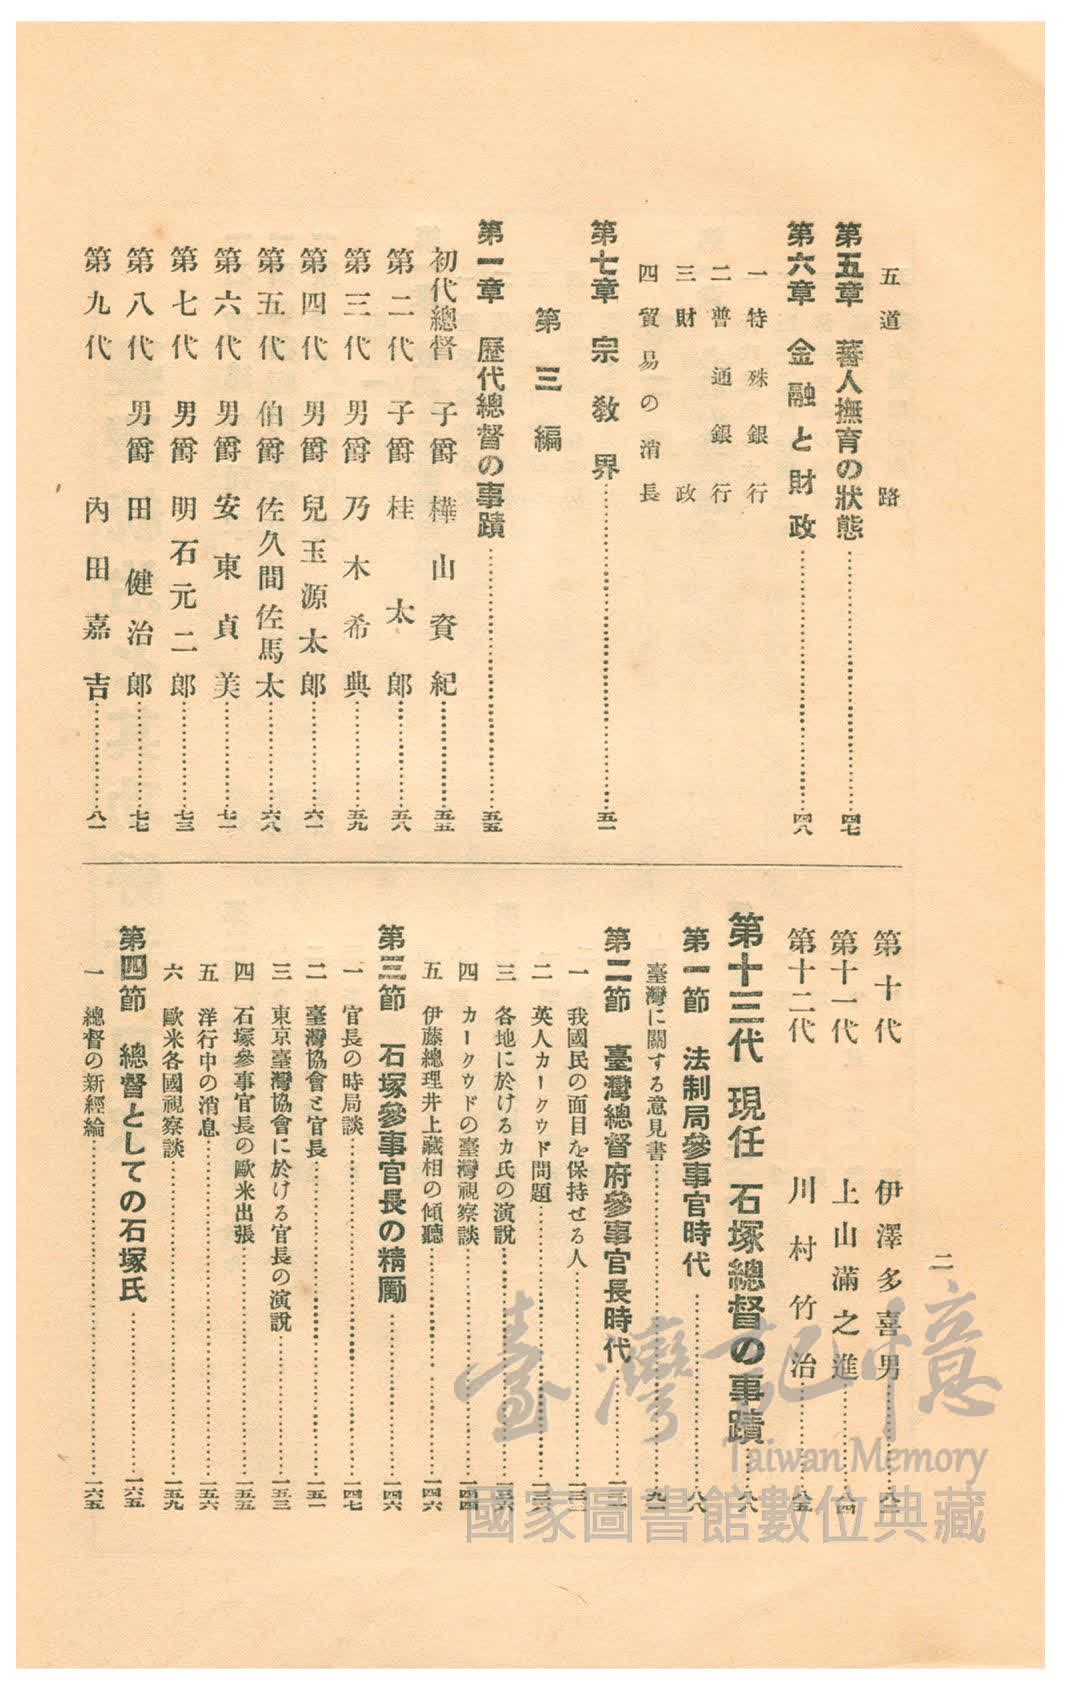 五道路
第五章 蕃人撫育の狀態……四七
第六章 金融と財政……四八
一 特殊銀行
二 普通銀行
三 財政
四 貿易の消長
第七章 宗敎界……五一
第三編
第一章 歷代總督の事蹟……五五
初代總督 子爵 樺山資紀……五五
第二代 子爵 桂太郎……五八
第三代 男爵 乃木希典……五九
第四代 男爵 兒玉源太郎……六一
第五代 伯爵 佐久間佐馬太……六八
第六代 男爵 安東貞美……七一
第七代 男爵 明石元二郎……七三
第八代 男爵 田健治郎……七七
第九代 內田嘉吉……八一
二
第十代 伊澤多喜男……八三
第十一代 上山滿之進……八四
第十二代 川村竹治……八五
第十三代 現任 石塚總督の事蹟……八八
第一節 法制局參事官時代……八八
臺灣に關する意見書……九一
第二節 臺灣總督府參事官長時代……
一 我國民の面目を保持せる人……
二 英人カークウド問題……
三 各地に於けるカ氏の演說……
四 カークウドの臺灣視察談……一四四
五 伊藤總理井上藏相の傾聽……一四六
第三節 石塚參事官長の精勵……一四六
一 官長の時局談……一四七
二 臺灣協會と官長……一五一
三 東京臺灣協會に於ける官長の演說……一五三
四 石塚參事官長の歐米出張……一五五
五 洋行中の消息……一五六
六 歐米各國視察談……一五九
第四節 總督としての石塚氏……一六五
一 總督の新經綸……一六五
臺灣記憶
Taiwan Memory
國家圖書館數位典藏